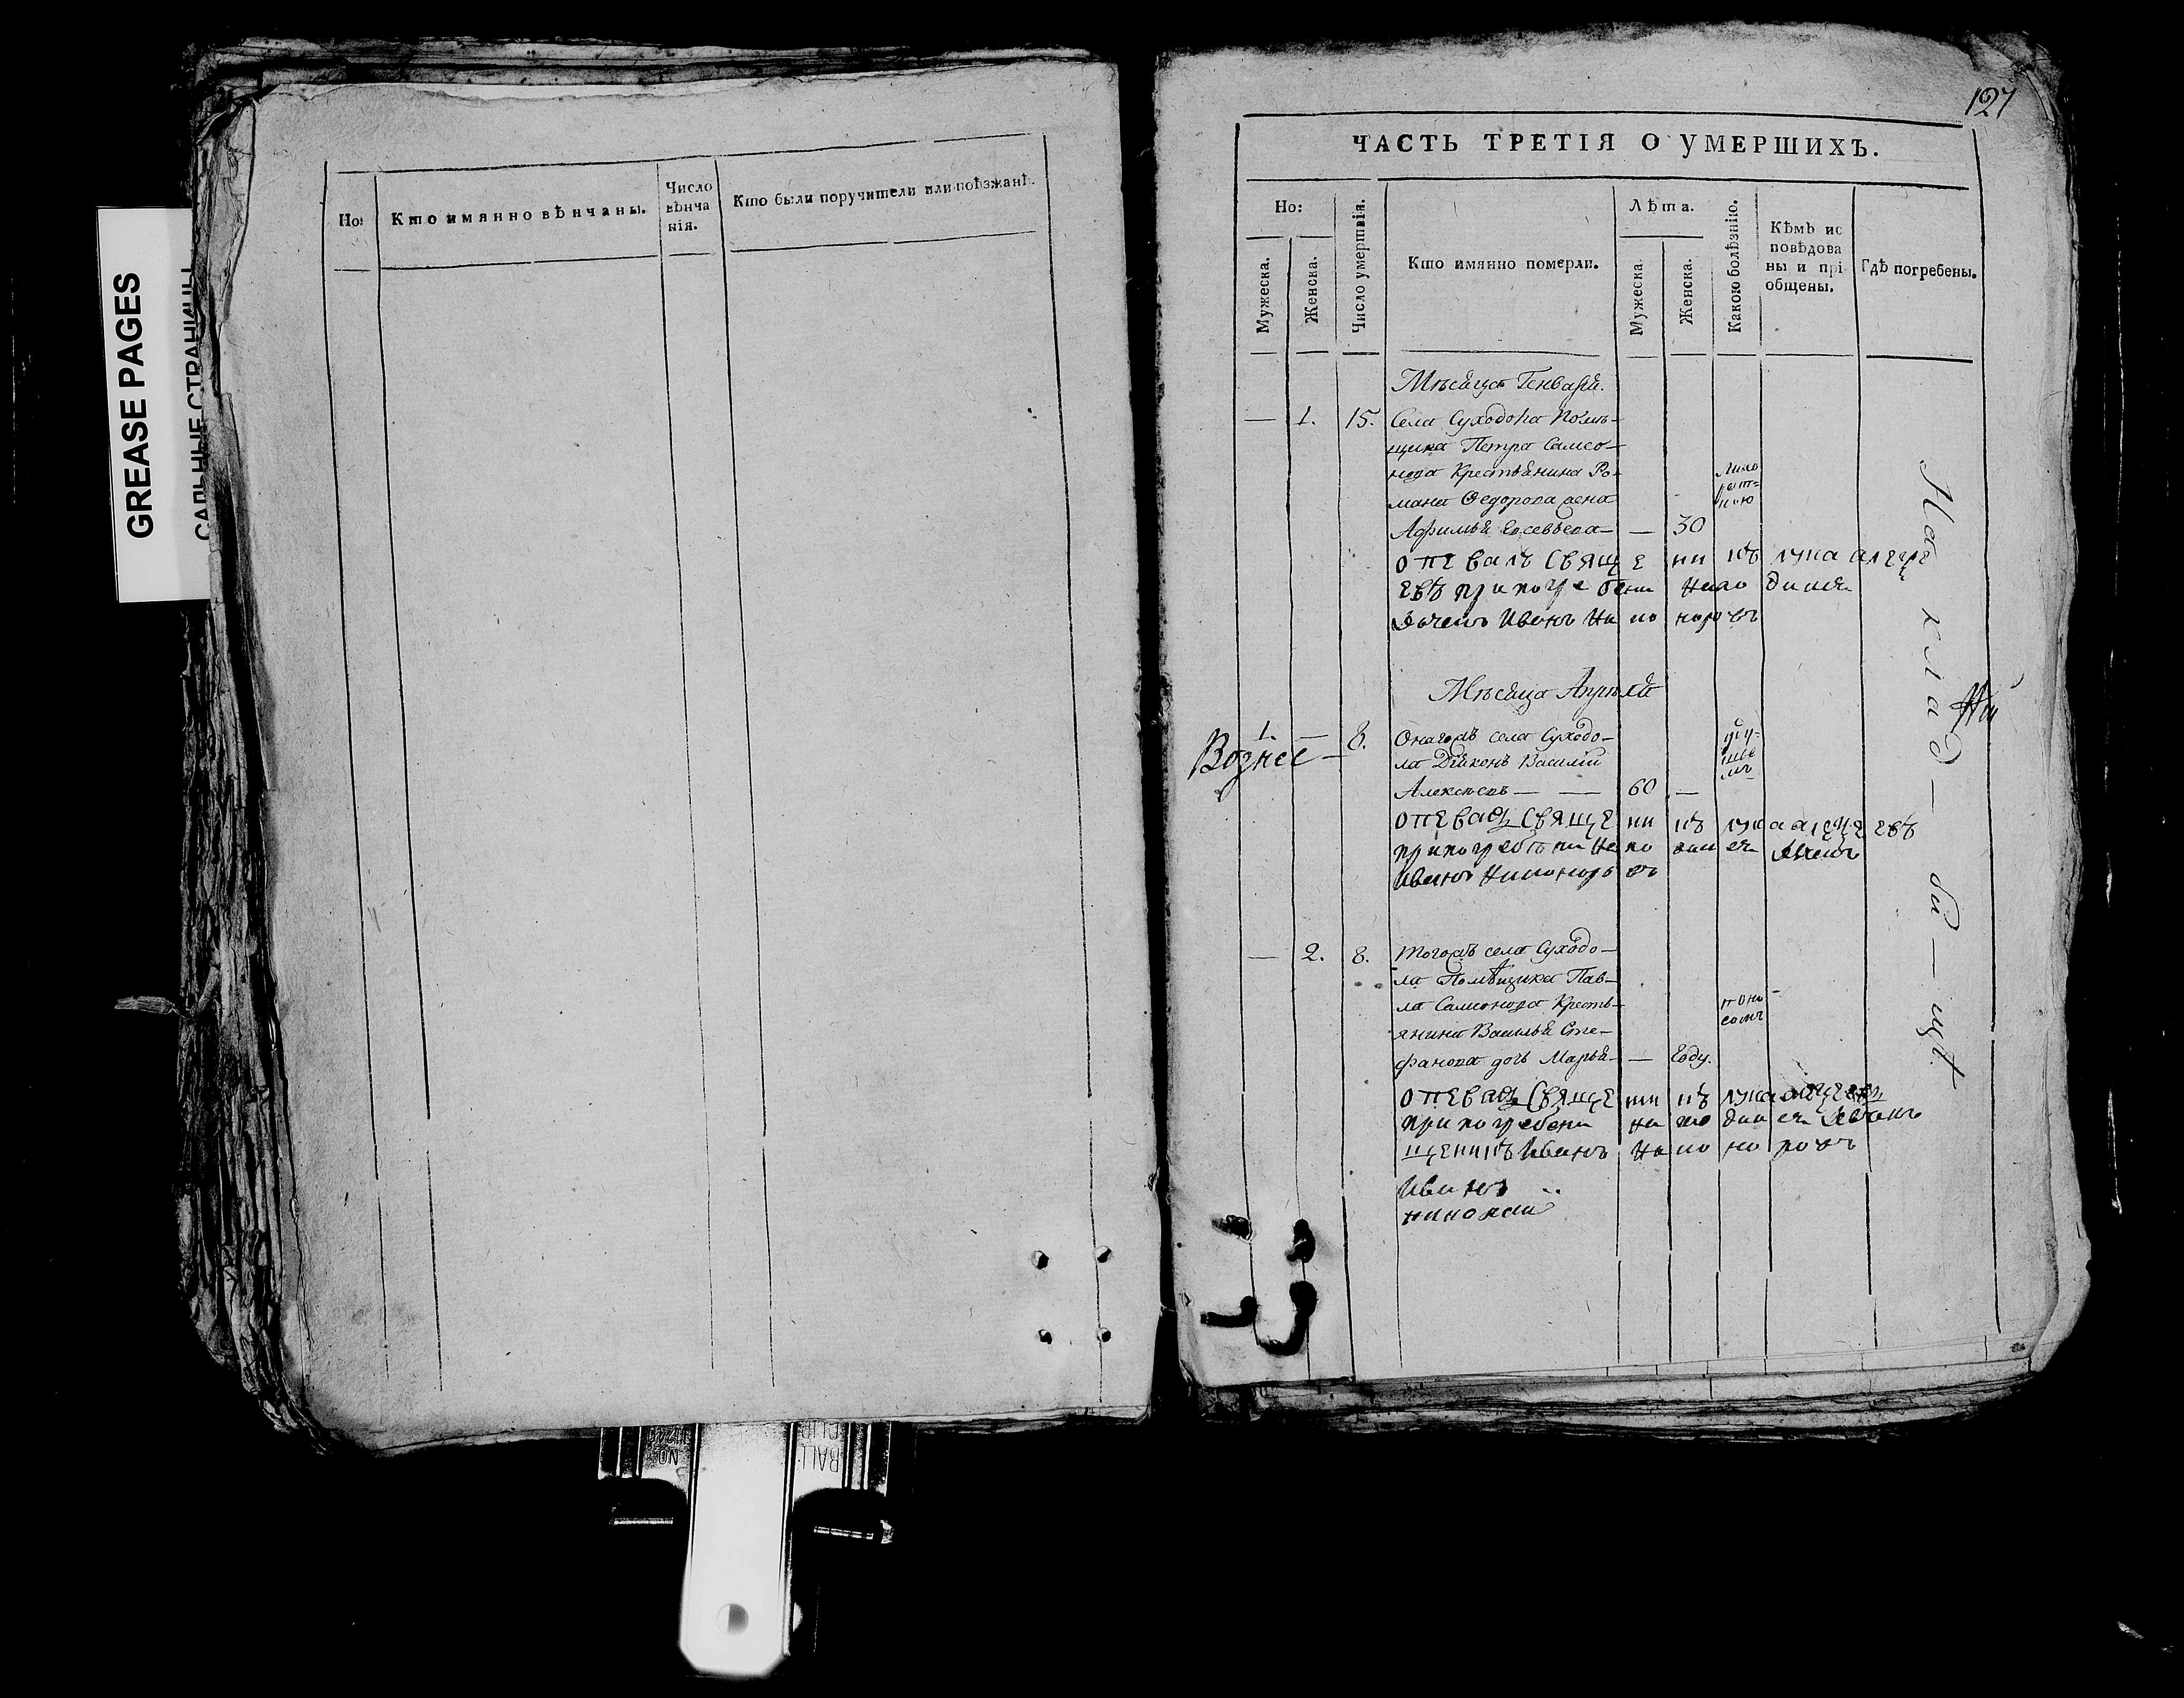 GREASE PAGES
САЛЬНЫЕ СТРАНИЦЫ
Но:
Кто имянно вѣнчаны.
Число
вѣнча
нія.
Кто были поручители или поѣзжанѣ.
127
ЧАСТЬ ТРЕТІЯ О УМЕРШИХЪ.
Но:
Мужеска.
Женска.
Число умершія.
Кто имянно померли.
Лѣта.
Мужеска.
Женска.
Какою болѣзнію.
Кѣмъ ис
повѣдова
ны и прі
общены.
Гдѣ погребены.
Мѣсяца Генваря.
— 1. 15. Села Суходола помѣ-
щика Петра Самсо-
нова Крестьянина Ро-
мана Ѳедорова жена
Афимья — 30
Лихо
рат-
кою
опевалъ священникъ лука
при погребени находился
дячекъ Иванъ Никоноровъ
Мѣсяца Апрѣля
1. — 8. Онагожъ села Суходо-
ла Діяконъ Василій
Алексѣевъ — — 60 —
Вознес —
опевалъ священникъ лука
при погребени находился дячекъ
Иванъ Никоноровъ
— 2. 8. Тогожъ села Суходо-
ла Помѣщика Пав-
ла Самсонова Кресть-
янина Василья Сте-
фанова дочь Марья — году.
поно
сомъ
опевалъ священникъ лука
при погребени находился
Иванъ Никоноровъ
Иванъ
На клад — би — щѣ